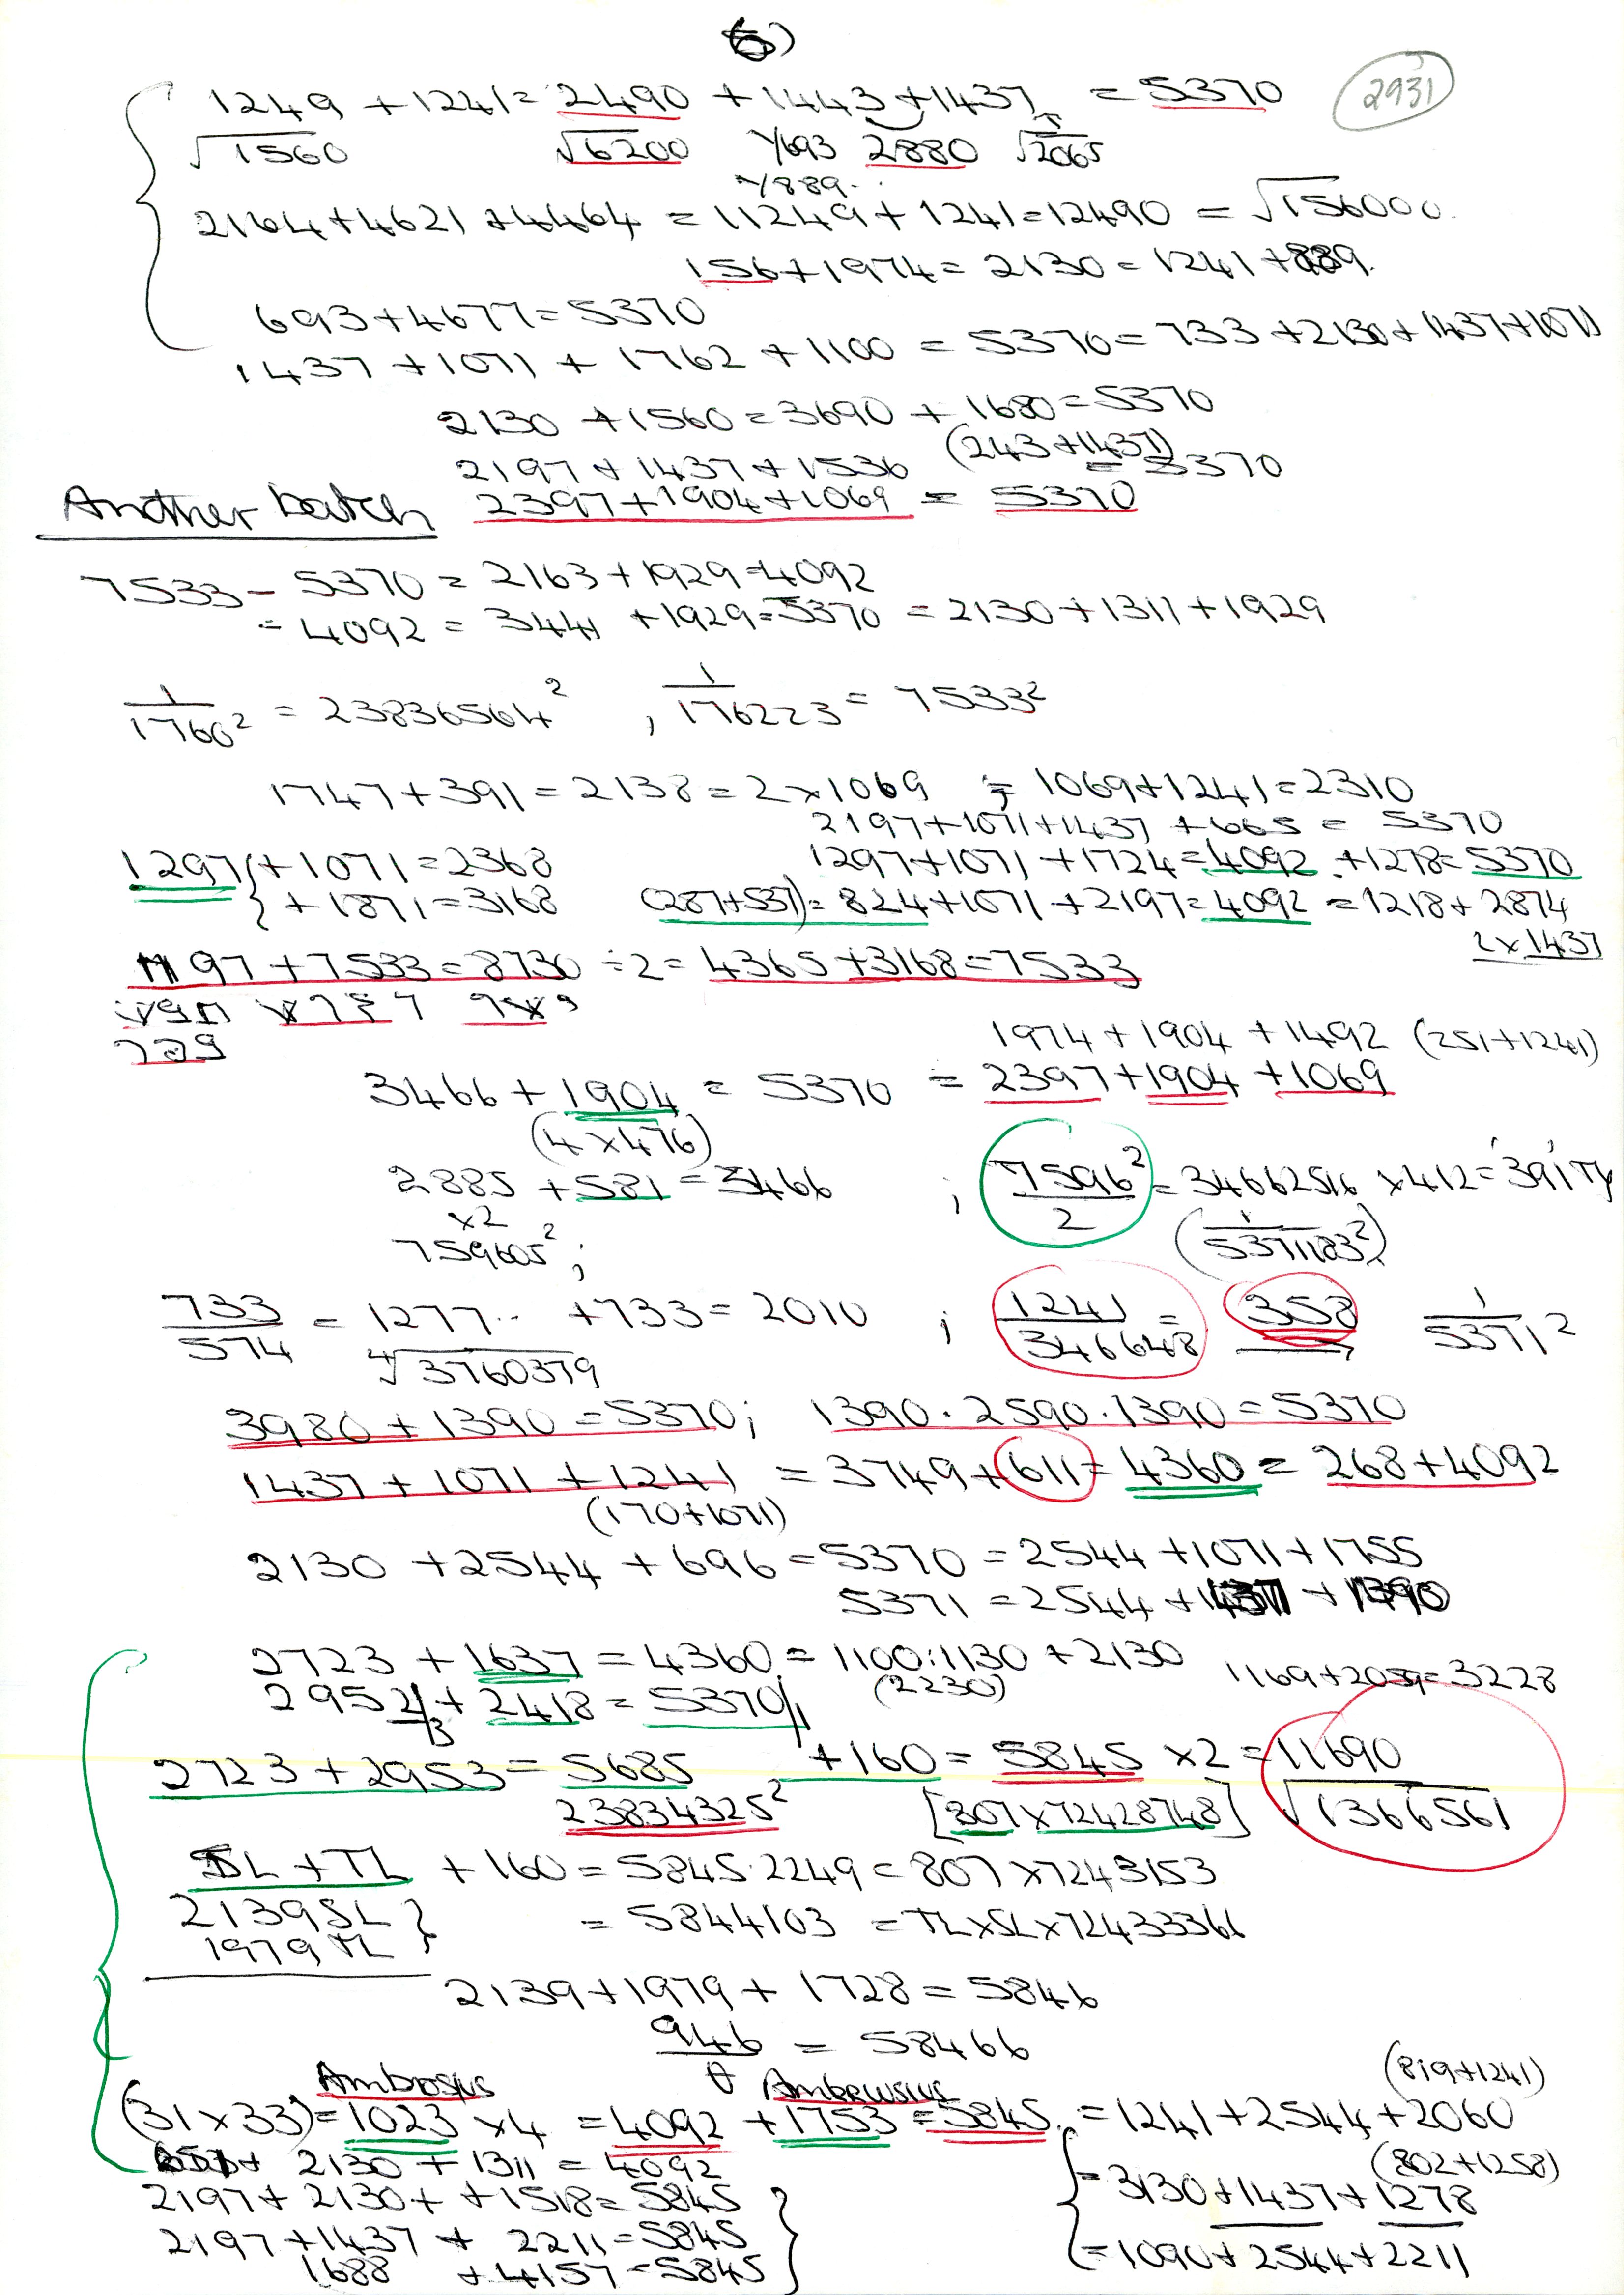 6)
2931
1249 + 1241 = 2490 + 1443 + 1437 = 5370
√1560 √6200 1/693 2880 √2065
1/889..
2164 + 4621 + 4464 = 11249 + 1241 = 12490 = √156000.
156 + 1974 = 2130 = 1241 + 889.
693 + 4677 = 5370
1437 + 1071 + 1762 + 1100 = 5370 = 733 + 2130 + 1437 + 1071
2130 + 1560 = 3690 + 1680 = 5370
(243 + 1437)
2197 + 1437 + 1536 = 5370
Another batch 2397 + 1904 + 1069 = 5370
7533 - 5370 = 2163 + 1929 = 4092
= 4092 = 3441 + 1929 = 5370 = 2130 + 1311 + 1929
1/1760² = 23836564² , 1/176223 = 7533²
1747 + 391 = 2138 = 2 x 1069 ; = 1069 + 1241 = 2310
2197 + 1071 + 1437 + 665 = 5370
1297 } + 1071 = 2368 1297 + 1071 + 1724 = 4092 . + 1278 = 5370
} + 1871 = 3168 (287 + 537) = 824 + 1071 + 2197 = 4092 = 1218 + 2874
2 x 1437
1197 + 7533 = 8730 ÷ 2 = 4365 + 3168 = 7533
1974 + 1904 + 1492 (251 + 1241)
3466 + 1904 = 5370 = 2397 + 1904 + 1069
(4 x 476)
2885 + 581 = 3466 ; 7596²/2 = 34662516 x 412 = '391' Ty
x2 (1/5371183²)
759605² ;
733/574 = 1277.. + 733 = 2010 ; 1241/346648 = 358 1/5371²
∜3760379
3980 + 1390 = 5370 ; 1390 . 2590 . 1390 = 5370
1437 + 1071 + 1241 = 3749 + 611 = 4360 = 268 + 4092
(170 + 1071)
2130 + 2544 + 696 = 5370 = 2544 + 1071 + 1755
5371 = 2544 + 1437 + 1390
2723 + 1637 = 4360 = 1100 : 1130 + 2130 1169 + 2059 = 3228
(2230)
2952/3 + 2418 = 5370/1
2723 + 2953 = 5685 + 160 = 5845 x 2 = 11690
23834325² [807 x 72428748] √1366561
SL + TL + 160 = 5845.2249 = 807 x 7243153
2139 SL } = 5844103 = TL x SL x 72433366
1979 TL }
2139 + 1979 + 1728 = 5846
946/θ = 58466
Ambrosius Ambrusius (819 + 1241)
(31 x 33) = 1023 x 4 = 4092 + 1753 = 5845. = 1241 + 2544 + 2060
(802 + 1258)
651 + 2130 + 1311 = 4092
= 3130 + 1437 + 1278
2197 + 2130 + + 1518 = 5845
2197 + 1437 + 2211 = 5845
= 1090 + 2544 + 2211
1688 + 4157 = 5845